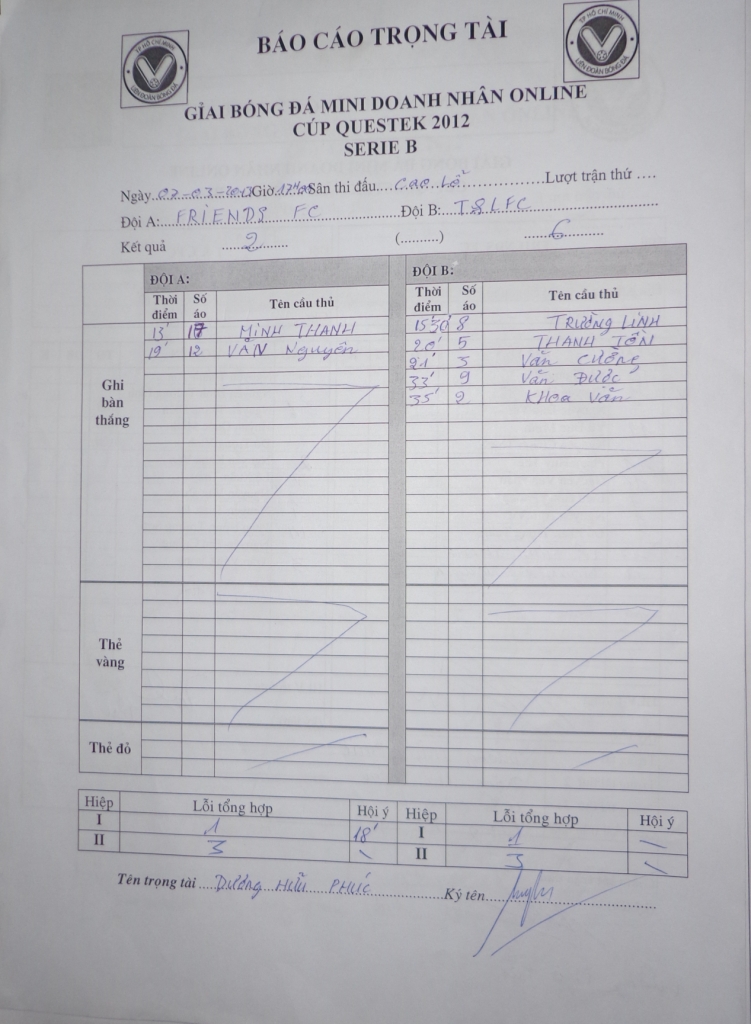 TP HỒ CHÍ MINH
LIÊN ĐOÀN BÓNG ĐÁ
BÁO CÁO TRỌNG TÀI
TP HỒ CHÍ MINH
LIÊN ĐOÀN BÓNG ĐÁ
GIẢI BÓNG ĐÁ MINI DOANH NHÂN ONLINE
CÚP QUESTEK 2012
SERIE B
Ngày 02-03-2013 Giờ Sân thi đấu... CAO LỖ ... Lượt trận thứ ....
Đội A: FRIENDS FC Đội B: TSLFC
Kết quả 2 (..........) 6
ĐỘI A: ĐỘI B:
Thời điểm Số áo Tên cầu thủ Thời điểm Số áo Tên cầu thủ
Ghi bàn thắng
13' 17 MINH THANH 15'30 8 TRƯỜNG LINH
19' 12 VĂN Nguyên 20' 5 THANH
21' 3 Văn CƯỜNG
33' 9 Văn ĐƯỢC
35' 2 KHOA Văn
Thẻ vàng
Thẻ đỏ
Hiệp Lỗi tổng hợp Hội ý Hiệp Lỗi tổng hợp Hội ý
I 1 18' I 1 \
II 3 \ II 3 \
Tên trọng tài DƯƠNG HỮU PHÚC Ký tên